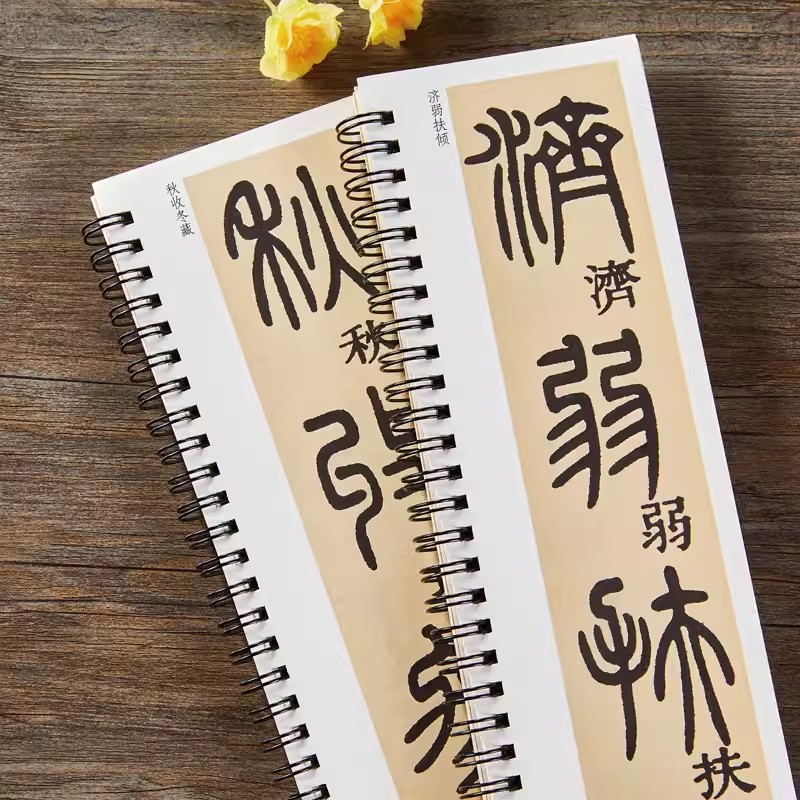 秋收冬藏
秋
秋
济弱扶倾
濟
濟
弱
弱
扶
扶